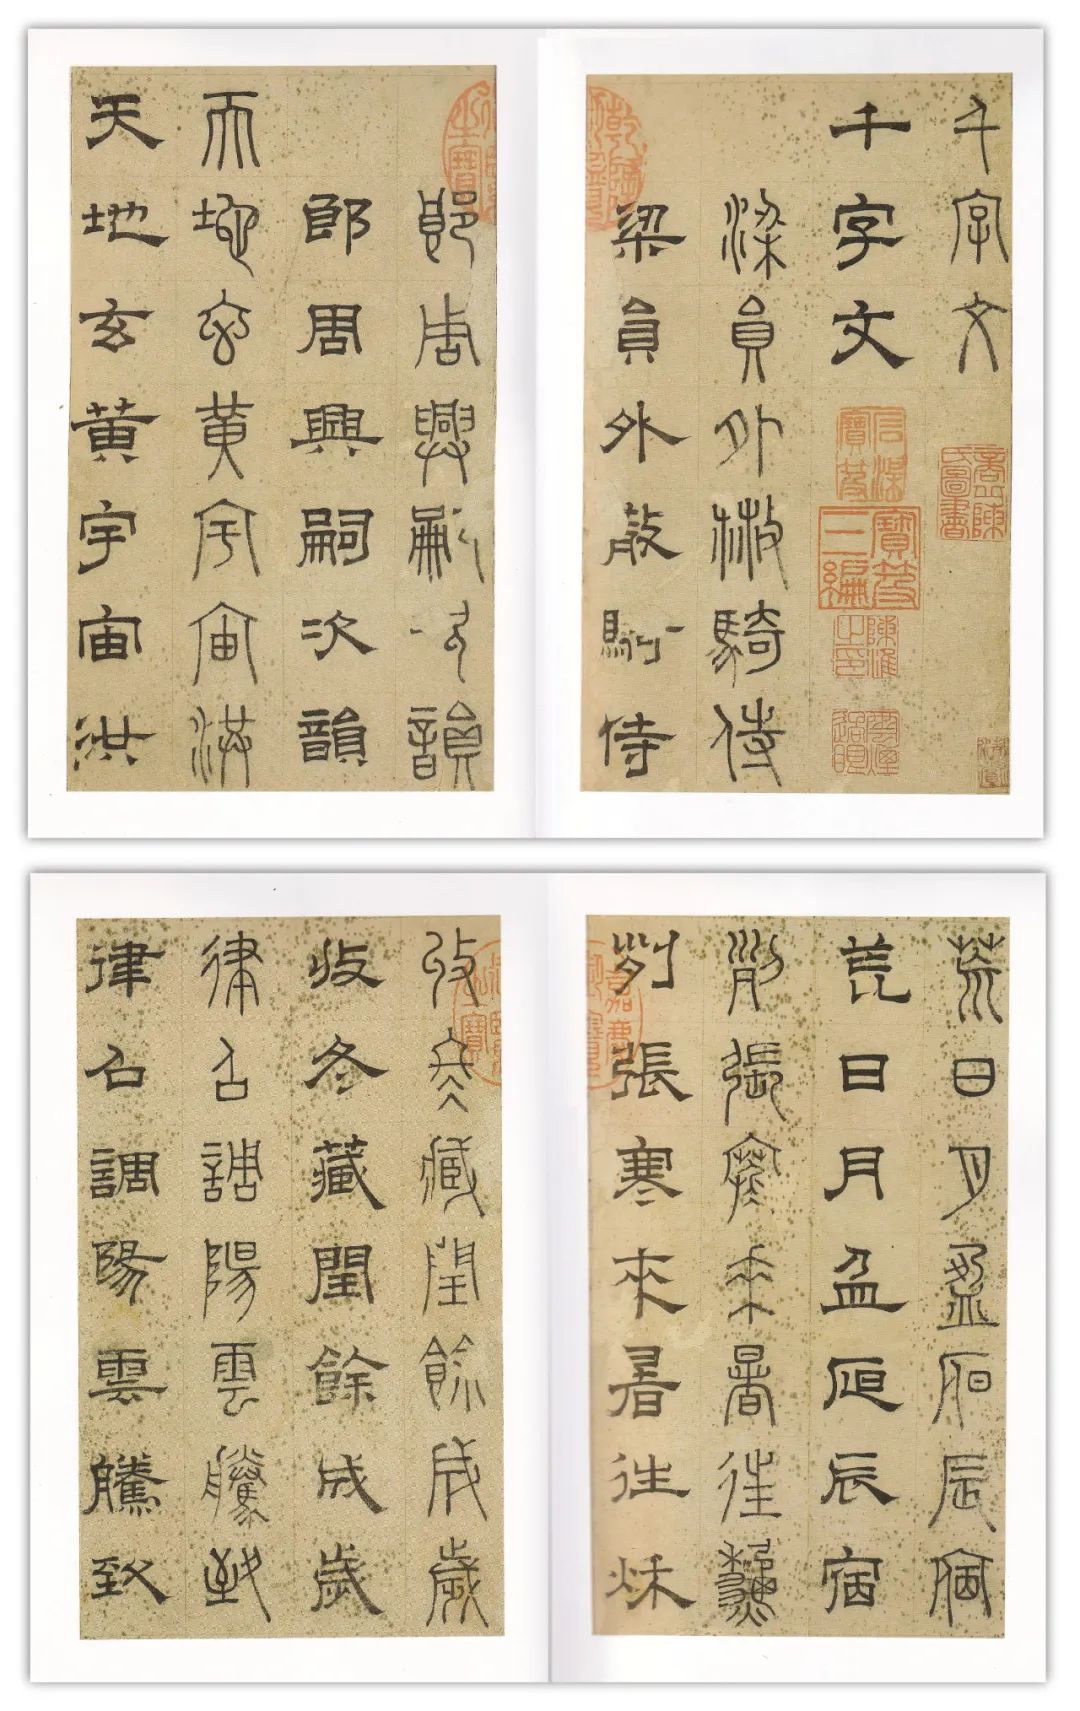 千字文
千字文
梁員外散騎侍
梁員外散騎侍
郎周興嗣次韻
郎周興嗣次韻
天地玄黃宇宙洪
天地玄黃宇宙洪
荒日月盈昃辰宿
荒日月盈昃辰宿
列張寒來暑往秋
列張寒來暑往秋
收冬藏閏餘成歲
收冬藏閏餘成歲
律召調陽雲騰致
律召調陽雲騰致
寶笈三編